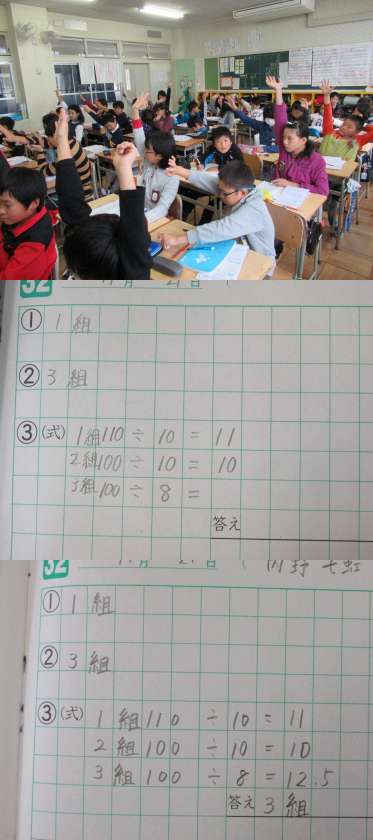 32 11月 21日
① 1組
② 3組
③ (式) 1組 110 ÷ 10 = 11
2組 100 ÷ 10 = 10
3組 100 ÷ 8 =
答え
32
① 1組
② 3組
③ (式) 1組 110 ÷ 10 = 11
2組 100 ÷ 10 = 10
3組 100 ÷ 8 = 12.5
答え 3組